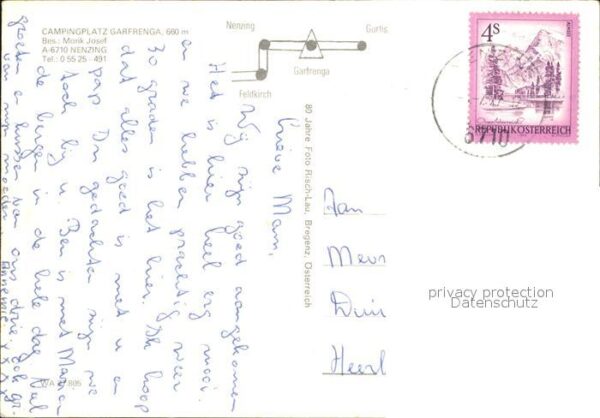 CAMPINGPLATZ GARFRENGA, 660 m
Bes.: Morik Josef
A-6710 NENZING
Tel.: 0 55 25 - 491
Nenzing
Gurtis
Garfrenga
Feldkirch
4S
REPUBLIK ÖSTERREICH
6710
80 Jahre Foto Risch-Lau, Bregenz, Österreich
Lieve Mam,
Wij zijn goed aangekomen
Het is hier heel erg mooi.
en we hebben prachtig weer
30 graden is het hier. Ik hoop
dat alles goed is met u en
pap. In gedachten zijn we
toch bij u. Ben is met Marion
de bergen in de hele dag. Veel
groeten en kussen van ons drie. Ook
van mijn moeder
Annemie x x x x
Jan
Meur
Duin
Heerl
privacy protection
Datenschutz
WA
805